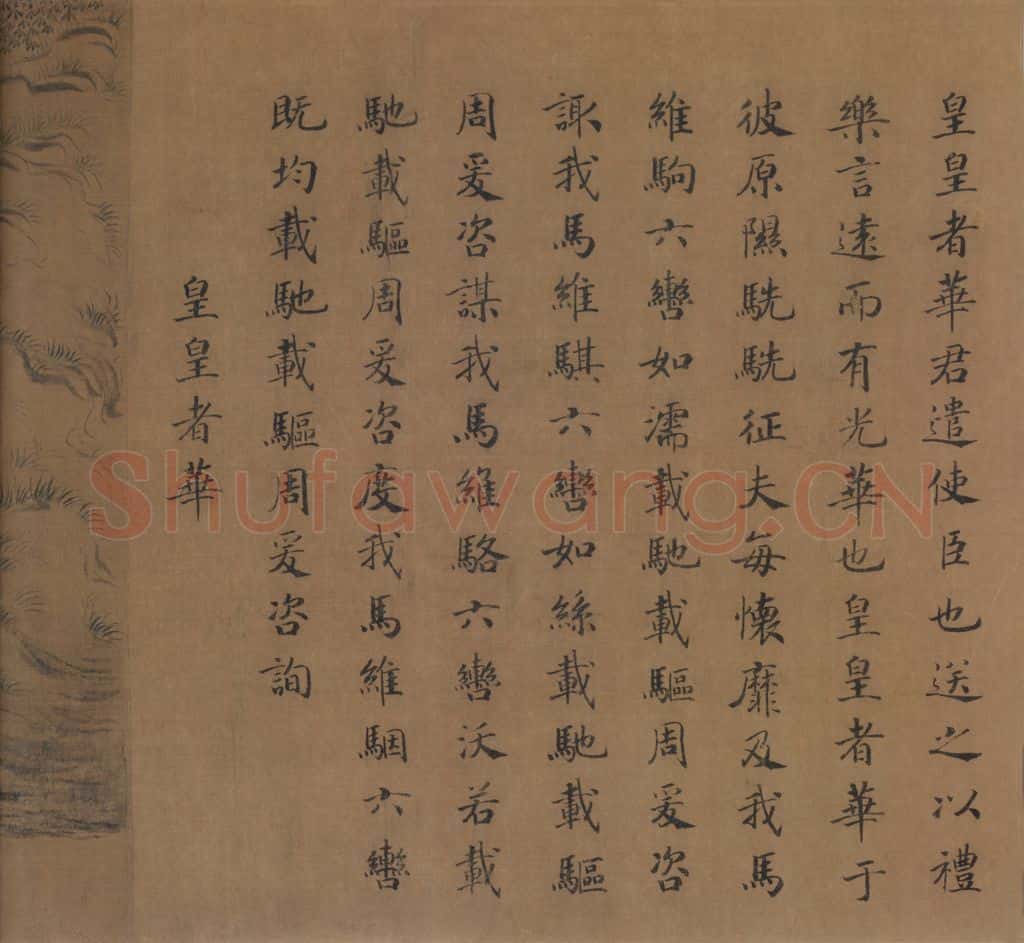 皇皇者華君遣使臣也送之以禮
樂言遠而有光華也皇皇者華于
彼原隰駪駪征夫每懷靡及我馬
維駒六轡如濡載馳載驅周爰咨
諏我馬維騏六轡如絲載馳載驅
周爰咨謀我馬維駱六轡沃若載
馳載驅周爰咨度我馬維駰六轡
既均載馳載驅周爰咨詢
皇皇者華
Shufawang.CN